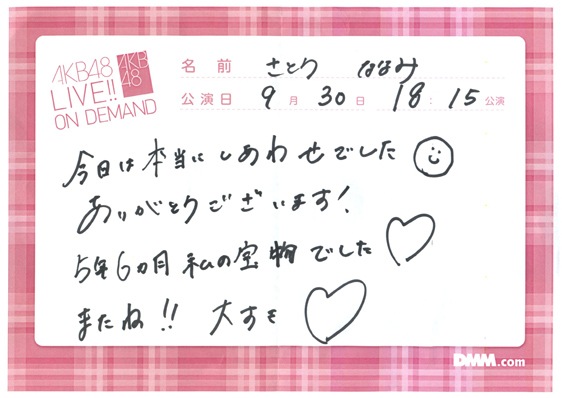 AKB48
LIVE!!
ON DEMAND
AKB
48
名前 さとり ななみ
公演日 9月30日 18:15公演
今日は本当にしあわせでした
ありがとうございます!
5年6カ月 私の宝物でした
またね!! 大すき
DMM.com